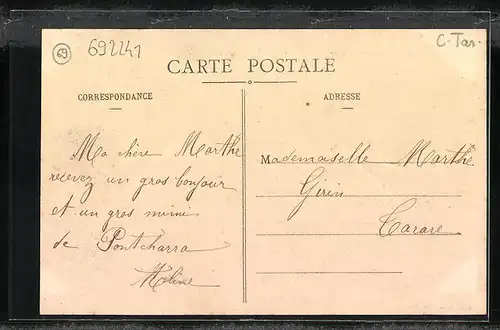 69
692241
C-Tar.
CARTE POSTALE
CORRESPONDANCE
ADRESSE
Ma chère Marthe
recevez un gros bonjour
et un gros mimi
de Pontcharra
Mademoiselle Marthe
Girin
Tarare